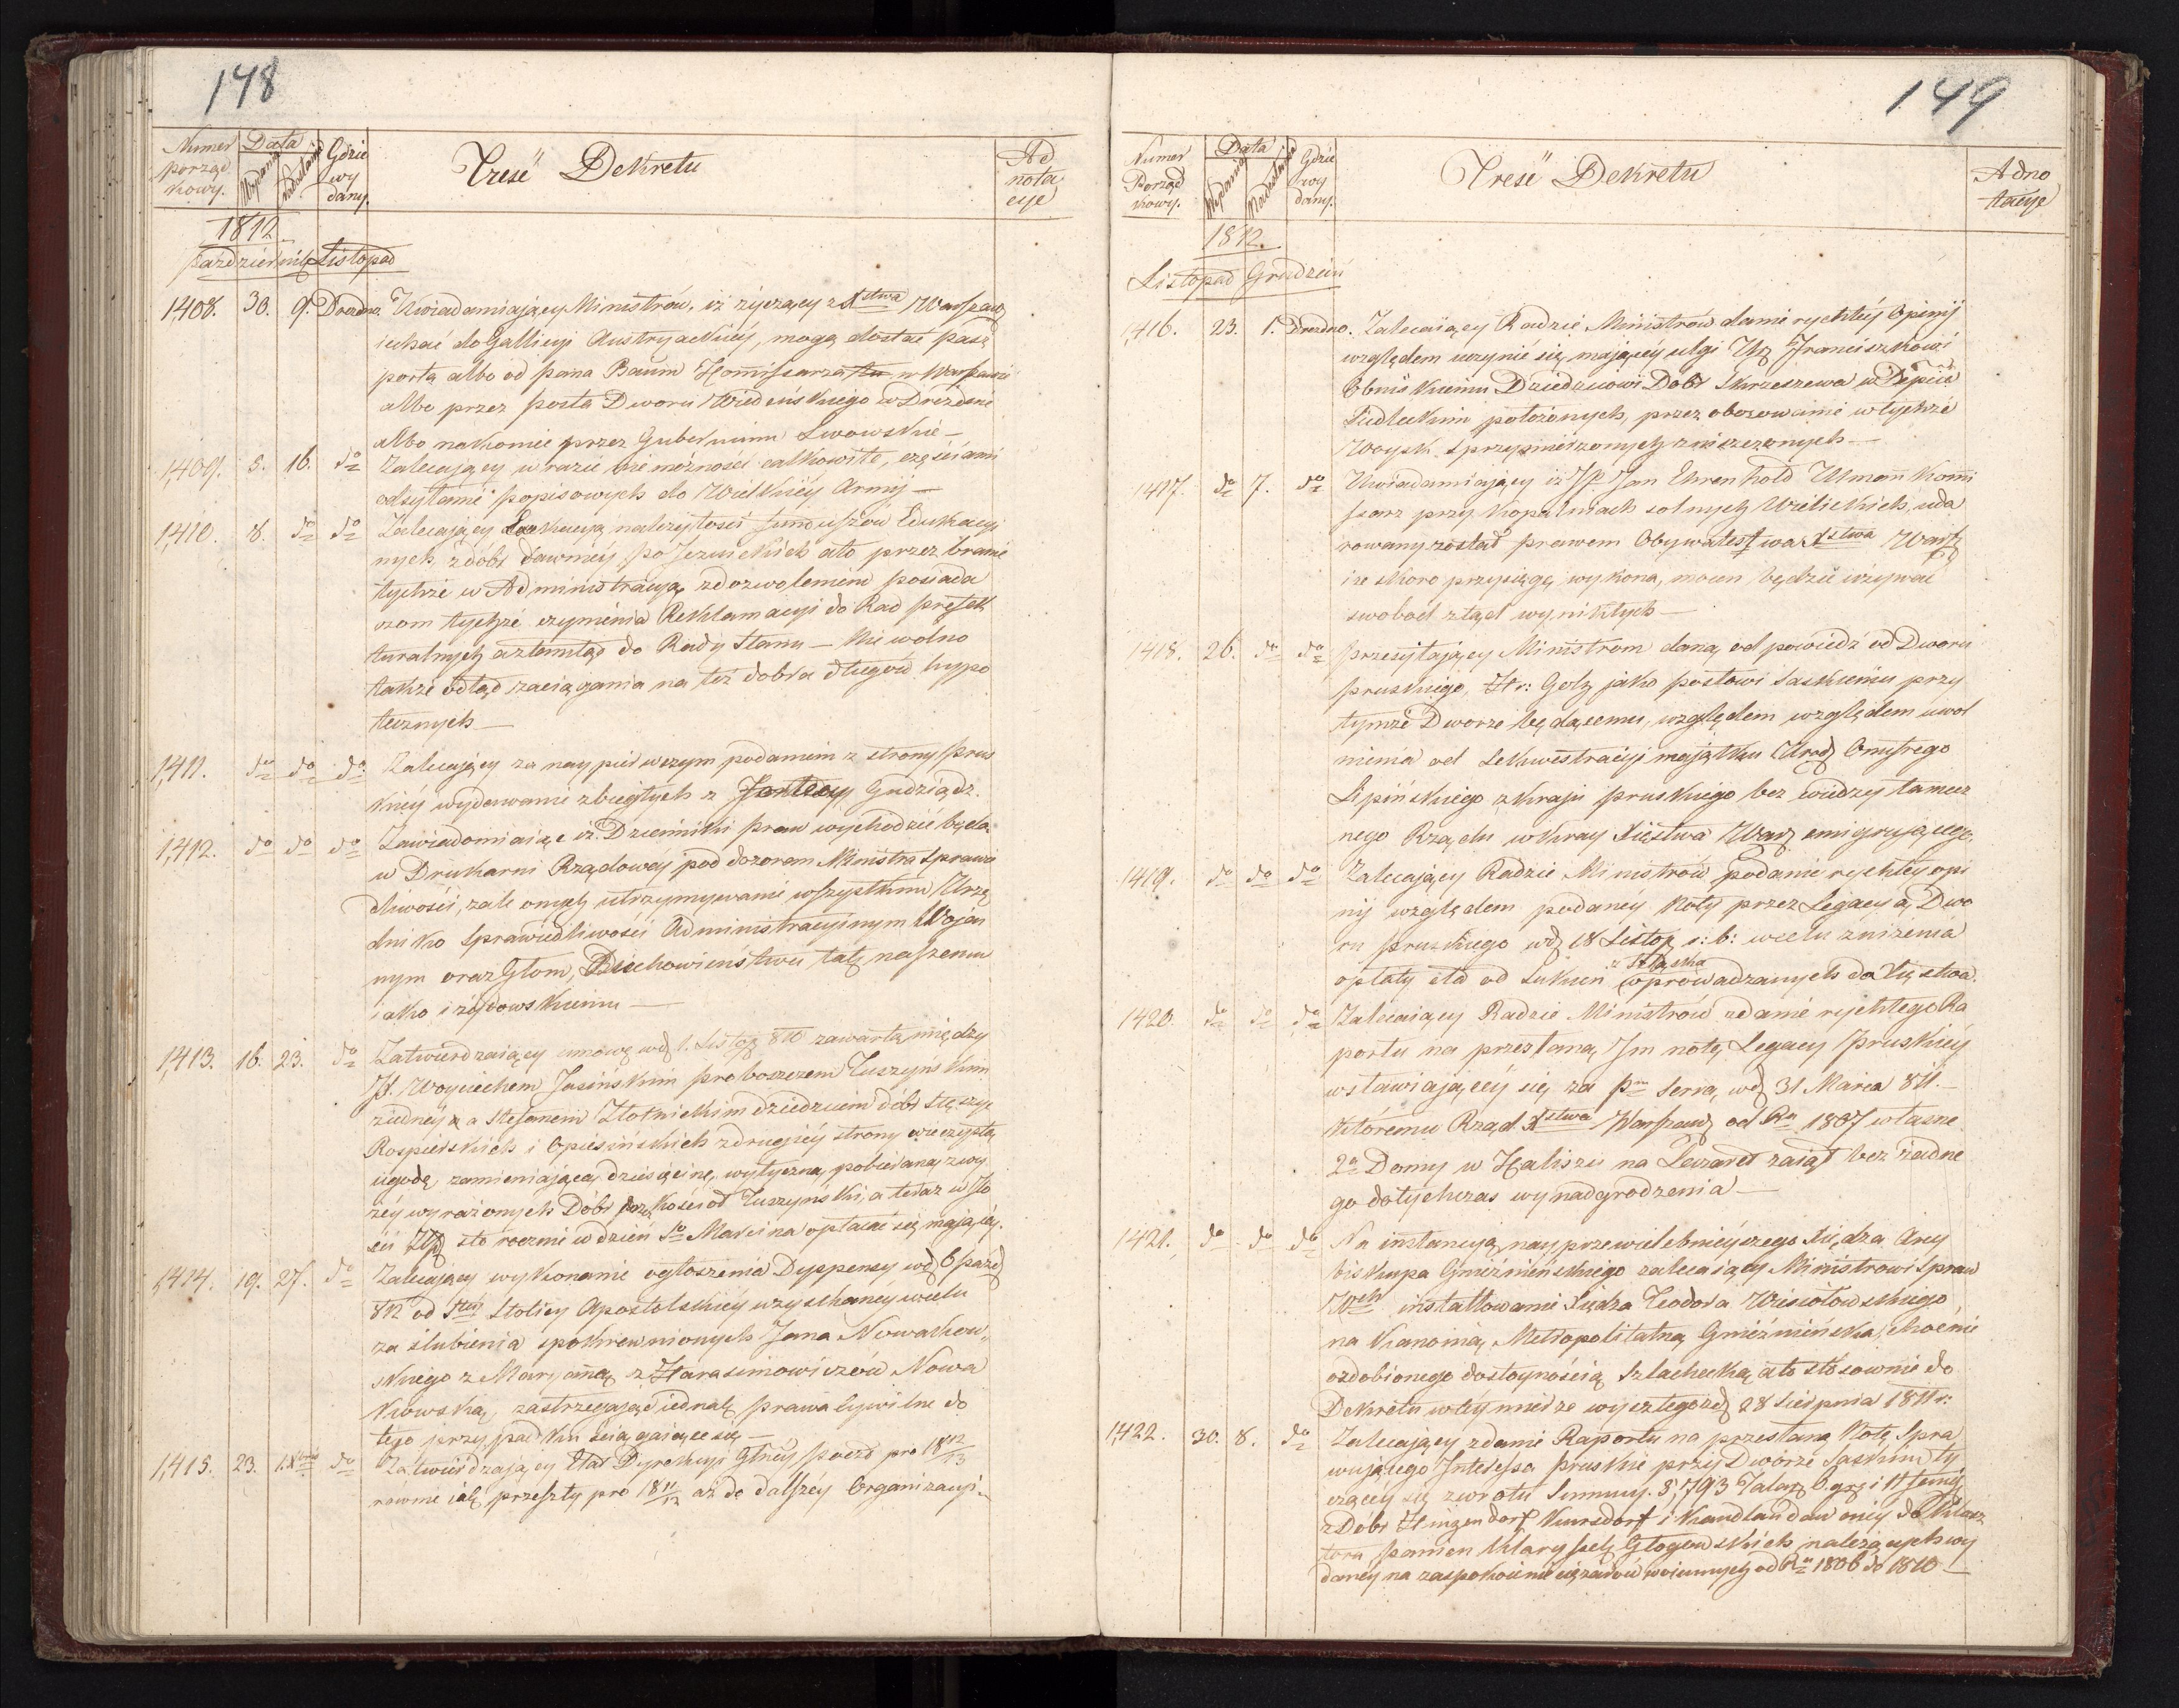 148
Numer porządkowy. Data Wydania Nadesłania Gdzie wydany. Treść Dekretu Adnotacye
1812
Październik Listopad
1,408. 30. 9. Drezdno. Uwiadamiaiący Ministrów, iż życzący z Xstwa Warszaw
iechać do Gallicyi Austryackiey, mogą dostać pasz
porta albo od Pana Baum Kommissarza w Warszawie
albo przez Posła Dworu Wiedeńskiego w Dreźdnie
albo nakoniec przez Gubernium Lwowskie —
1,409. 5. 16. do Zalecaiący w razie niemożności całkowite, częściami
odsyłanie popisowych do Wielkiey Armij —
1,410. 8. do do Zalecaiący Exekucyą należytości funduszów Edukacyi
nych, z dóbr dawniey po Jezuickich a to przez branie
tychże w Administracyą, z dozwoleniem posiada
czom tychże czynienia Reklamacyi do Rad Prefek
turalnych a ztamtąd do Rady Stanu — Nie wolno
także odtąd zaciągania na też dobra długów hypo
tecznych —
1,411. do do do Zalecaiący za naypierwszym podaniem z strony Prus
kiey wydawanie zbiegłych z Fortecy Grudziądz.
1,412. do do do Zawiadomiaiący iż Dzienniki Praw wychodzić będą
w Drukarni Rządowey pod dozorem Ministra Sprawie
dliwości, zale onych utrzymywanie wszystkim Urzę
dniko Sprawiedliwości Administracyinym Wojen
nym oraz Głom, Duchowieństwu tak naszemu
iako i żydowskiemu —
1,413. 16. 23. do Zatwierdzaiący umowę wd 1. Listop 810 zawartą między
JX. Woyciechem Jasińskim proboszczem Tuszyńskim
z iedney a Stefanem Złotnickim dziedzicem dóbr
Rospierskich i Opiesińskich z drugiey strony wieczystą
ugodę zamieniaiącą dziesięcinę, wytyczną, pobieraną z wy
żey wyrażonych Dóbr przez kościoł Tuszynski, a teraz w Ilo
ści Złp sto rocznie w dzień So Marcina opłacać się maiącey.
1,414. 19. 27. do Zalecaiący wykonanie ogłoszenia Dyspensy wd 6 Paźd
812 od Stey Stolicy Apostolskiey uzyskaney wcelu
za ślubienia spokrewnionych Jana Nowakow„
skiego z Maryanną z Harasimowiczów Nowa
kowską, zastrzegaiąc iednak prawa Cywilne do
tego przypadku ściągaiące się —
1,415. 23. 1. Xbris do Zatwierdzaiący Etat Dyrekcyi Głney Poczt pro 1812/13
równie iak przeszły pro 1811/12 aż do dalszey Organizacyi —
149
Numer Porządkowy. Data Wydania Nadesłania Gdzie wydany. Treść Dekretu Adnotacye
1812.
Listopad Grudzień
1,416. 23. 1. Drezdno. Zalecaiący Radzie Ministrów danie rychłéy Opinij
względem uczynić się maiącéy ulgi Ur Franciszkowi
Obniskiemu Dziedzicowi Dóbr Skrzeszewa w Depcie
Siedleckim położonych, przez obozowanie w tychże
Woysk Sprzymierzonych zniszczonych —
1417. do 7. do Uwiadamiaiący iż JP. Jan Ehrenhold Ulman Kommi
ssarz przy kopalniach solnych Wielickich, uda
rowany został prawem Obywatelstwa Xstwa Warsz
i że skoro przysięgę wykona, mocen będzie używać
swobod ztąd wynikłych —
1418. 26. do do Przesyłaiący Ministrom daną odpowiedź od Dworu
Pruskiego, Hr: Golz jako Posłowi Saskiemu przy
tymże Dworze będącemu, względem względem uwol
nienia od Sekwestracyi maiątku Urod Onufrego
Lipińskiego z kraju Pruskiego bez wiedzy tamecz
nego Rządu w kray Xięstwa Warz emigruiącego.
1419. do do do Zalecaiący Radzie Ministrów podanie rychłéy opi
nij względem podanéy Noty przez Legacyą Dwo
ru Pruskiego wd 18 Listop r: b: wcelu zniżenia
opłaty cła od Sukien z Szląska wprowadzanych do Xięstwa.
1420. do do do Zalecaiący Radzie Ministrów zdanie rychłego Ra
portu na przesłaną Jm notę Legacyi Pruskiéy
wstawiaiącéy się za Pm Serra, wd 31 Marca 811. —
któremu Rząd Xstwa Warszaw od Ru 1807 własne
2a Domy w Kaliszu na Lazaret zaiął bez żadne
go dotychczas wynadgrodzenia —
1421. do do do Na instancyą nayprzewielebnieyszego Xiędza Arcy
biskupa Gnieźnieńskiego zalecaiący Ministrowi Spraw
Wch installowanie Xiędza Teodora Wisiołowskiego
na Kanonią Metropolitalną Gnieźnieńską, choć nie
ozdobionego dostoynością Szlachecką, a to stosownie do
Dekretu w téy mierze wyszłego d 28 Sierpnia 1811 r:
1,422. 30. 8. do Zalecaiący zdanie Raportu na przesłaną Notę Spra
wuiącego Interessa Pruskie przy Dworze Saskim ty
czącéy się zwrotu Summy. 8,793 Talar 6. gr i 11 fenig
z Dóbr Klingendorf Kursdorf i Kandlau dawniéy do Klasz
toru Panien Klarysek Głogowskich należących wy
danéy na zaspokoienie ciężarów woiennych od Ru 1806 do 1810 —